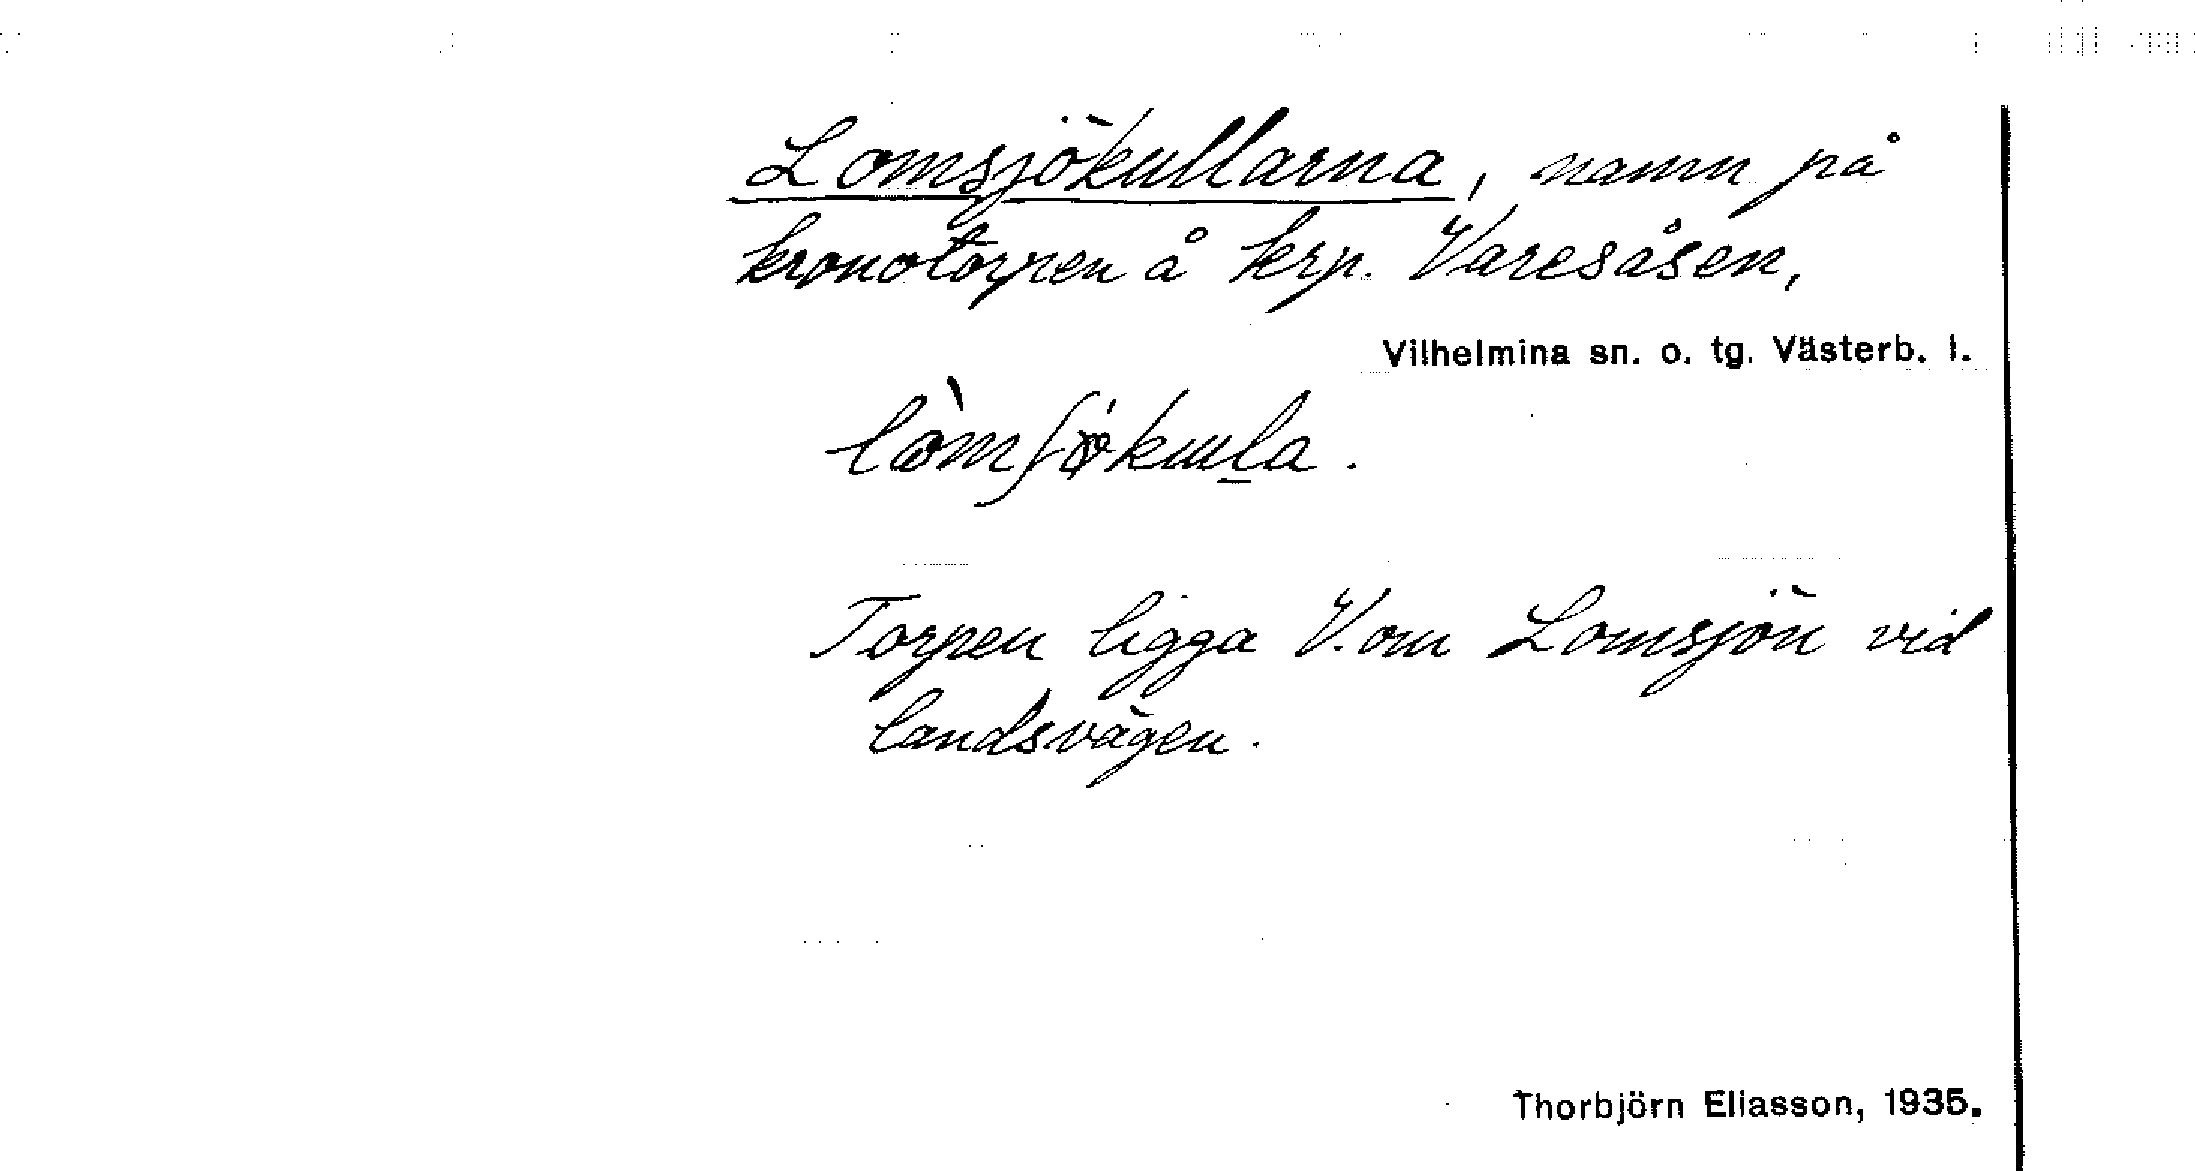 Lomsjökullarna, namn på
kronotorpen å krp. Varesåsen,
Vilhelmina sn. o. tg. Västerb. l.
Torpen ligga V. om Lomsjön vid
landsvägen.
Thorbjörn Eliasson, 1935.